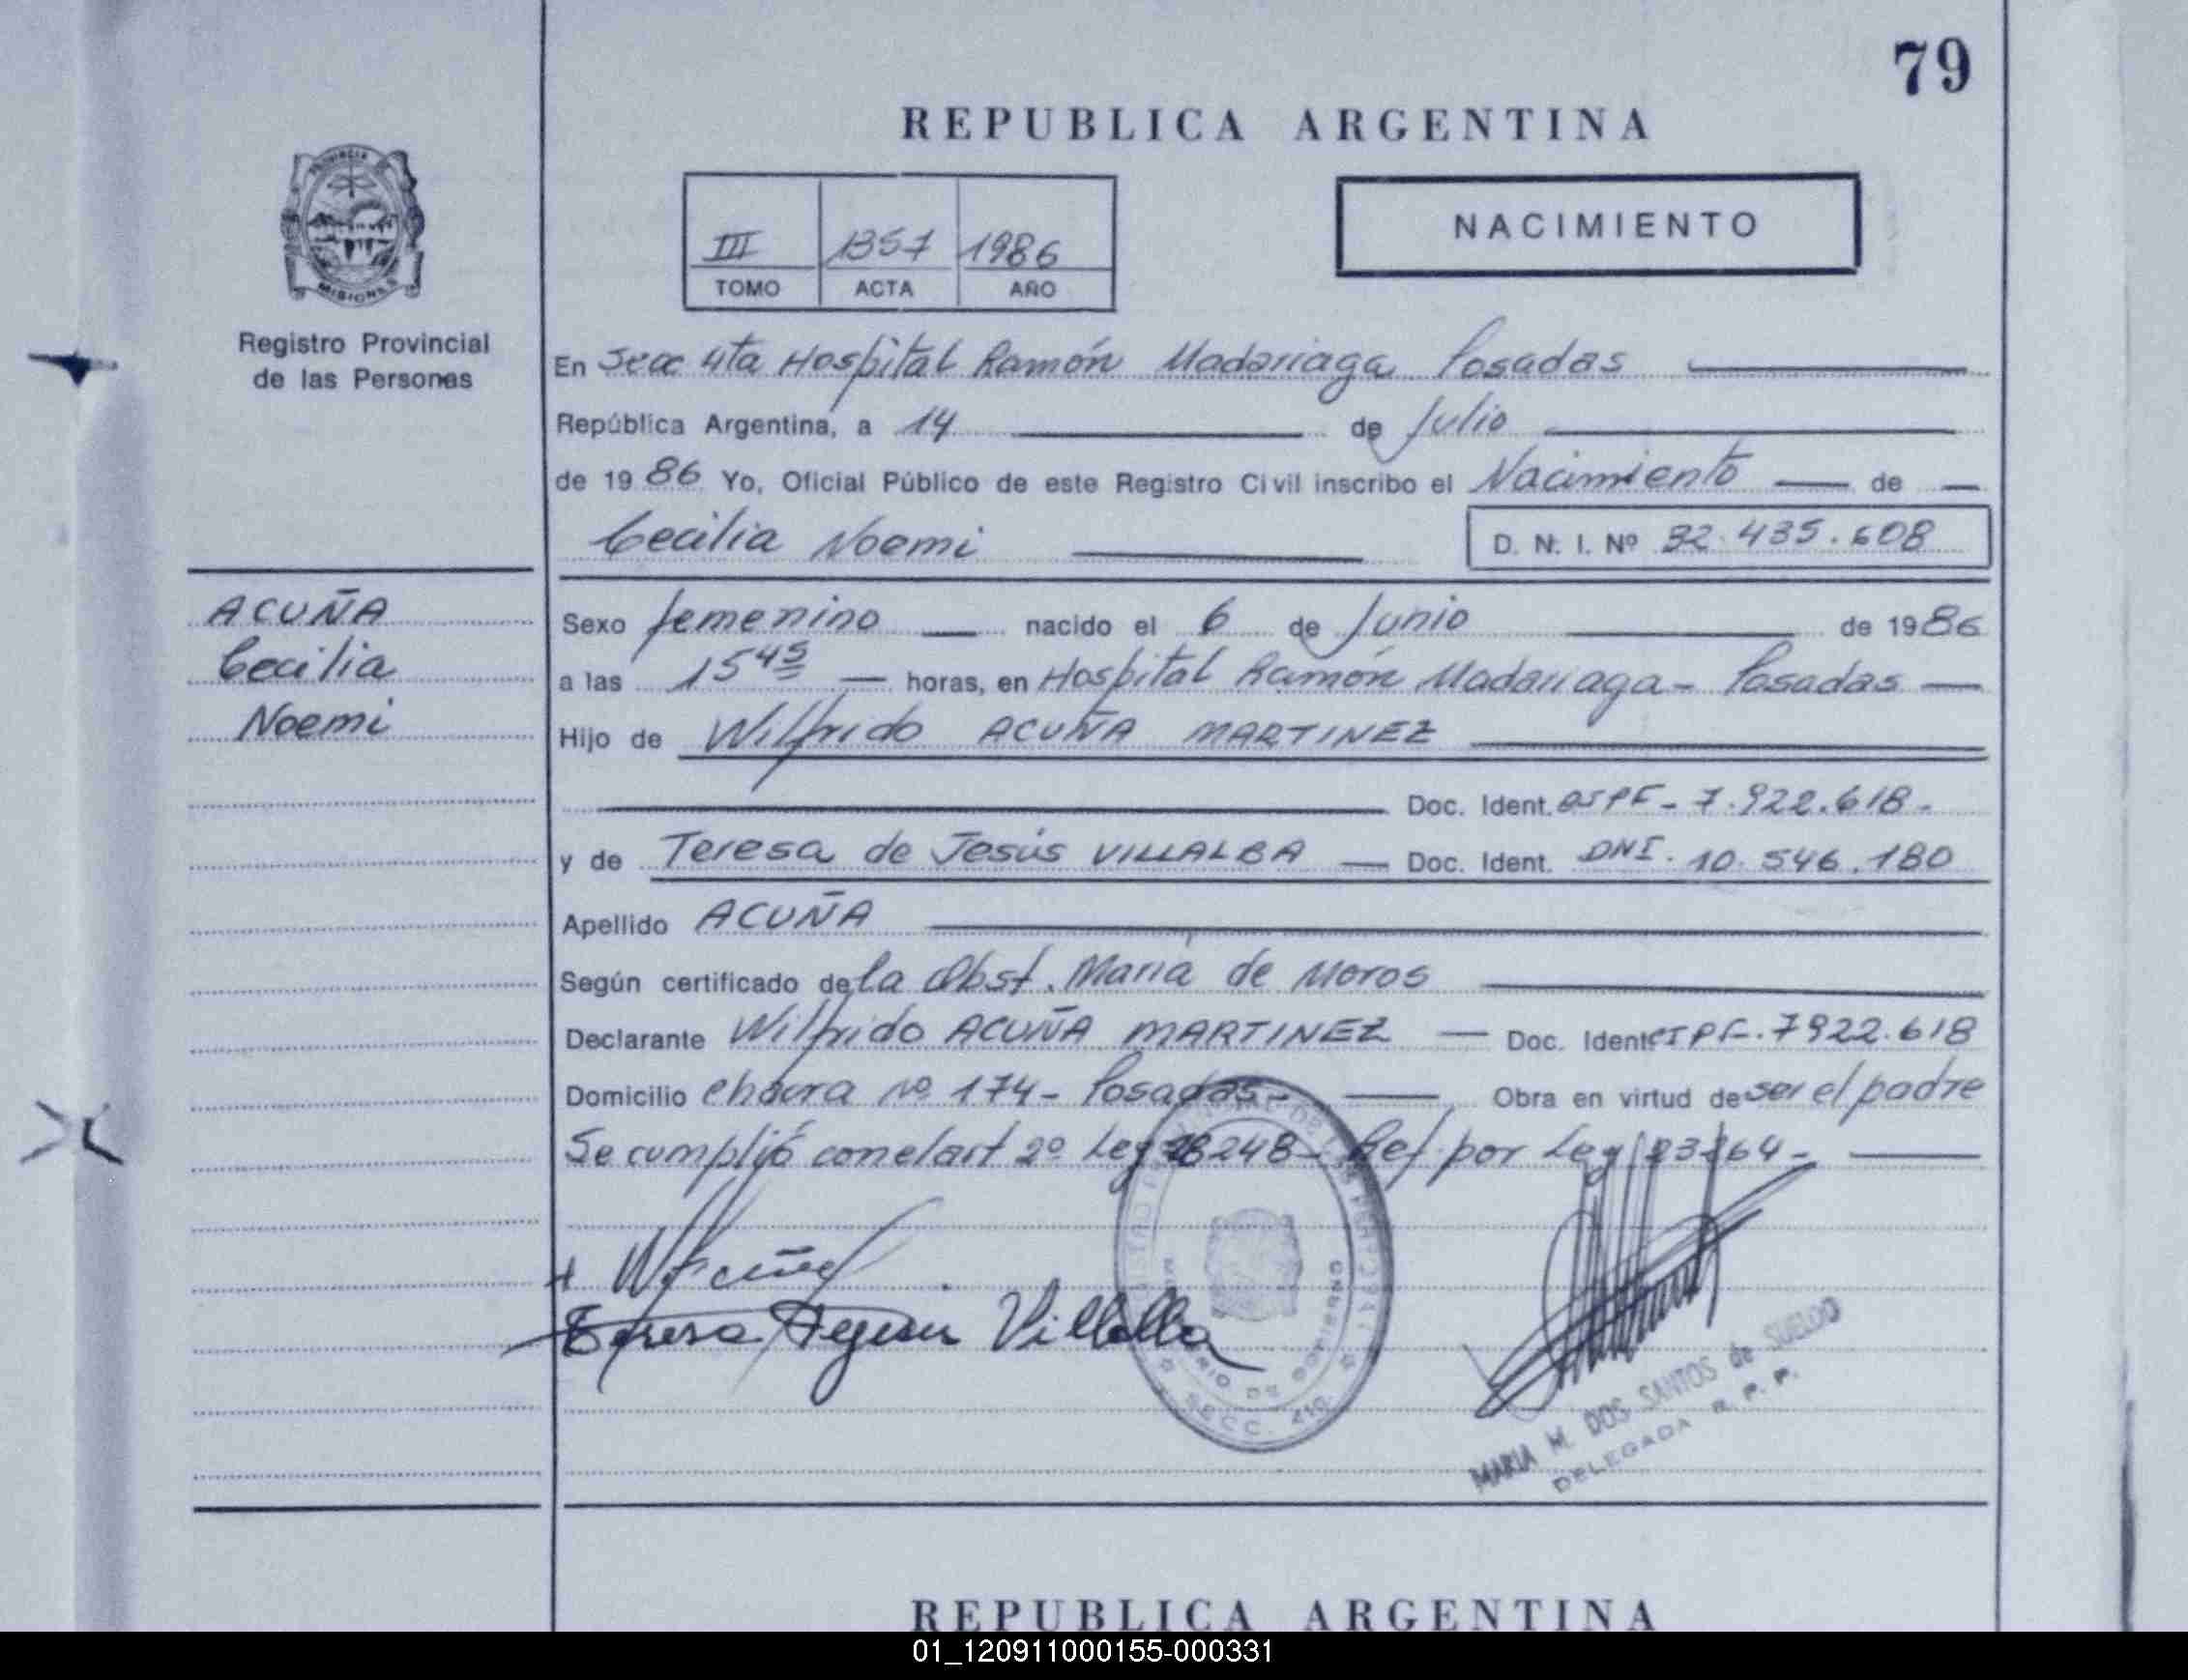 79
REPUBLICA ARGENTINA
PROVINCIA
MISIONES
III 1357 1986
TOMO ACTA AÑO
NACIMIENTO
Registro Provincial
de las Personas
En Secc 4ta Hospital Ramón Madariaga Posadas
República Argentina, a 14 de Julio
de 1986 Yo, Oficial Público de este Registro Civil inscribo el Nacimiento de
Cecilia Noemi
D. N. I. Nº 32.435.608
ACUÑA
Cecilia
Noemi
Sexo femenino nacido el 6 de Junio de 1986
a las 15 45 horas, en Hospital Ramón Madariaga - Posadas
Hijo de Wilfrido ACUÑA MARTINEZ
Doc. Ident. 7.922.618.
y de Teresa de Jesús VILLALBA Doc. Ident. DNI. 10.546.180
Apellido ACUÑA
Según certificado de la Obst. Maria de Moros
Declarante Wilfrido ACUÑA MARTINEZ Doc. Ident. CIPF. 7922.618
Domicilio chacra Nº 174 - Posadas - Obra en virtud de ser el padre
Se cumplió con el art 2º Ley 18248 - Ref. por Ley 23264 -
W Acuña
Teresa Villalba
SECC. 4ta
MARIA M. DOS SANTOS de SUELDO
DELEGADA R. P. P.
REPUBLICA ARGENTINA
01_120911000155-000331